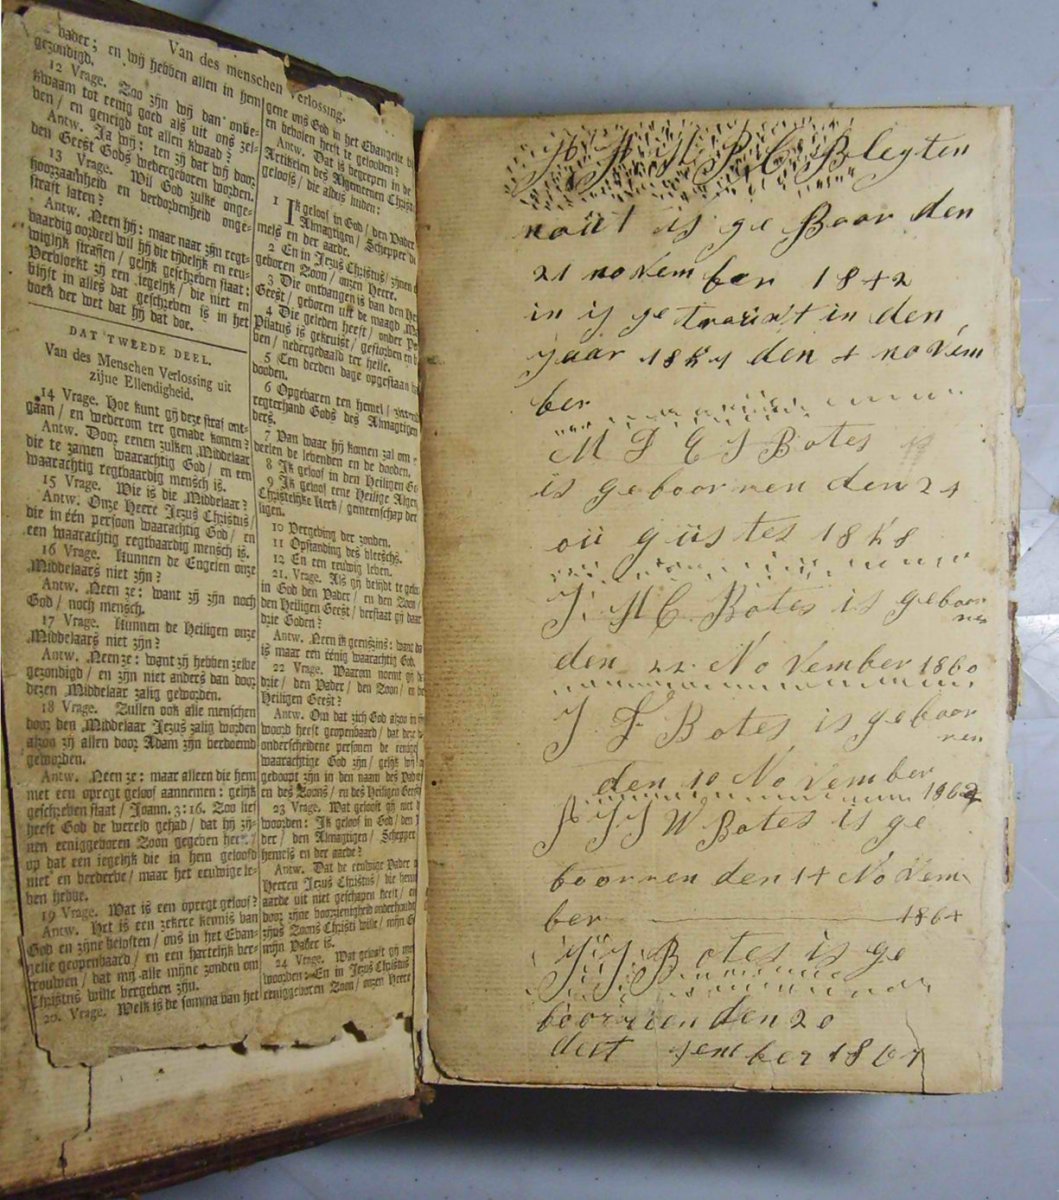 Van des menschen verlossing.
vader; en wij hebben allen in hem
gezondigd.
12 Vrage. Zoo zijn wij dan onbe-
kwaam tot eenig goed als uit ons zel-
ven / en geneigd tot allen kwaad?
Antw. Ja wij: ten zij dat wij door
den Geest Gods wedergeboren worden.
13 Vrage. Wil God zulke onge-
hoorzaamheid en verdorvenheid onge-
straft laten?
Antw. Neen hij: maar naar zijn regt-
vaardig oordeel wil hij die tijdelijk en eeu-
wiglijk straffen / gelijk geschreven staat:
Vervloekt zij een iegelijk / die niet en
blijft in alles dat geschreven is in het
boek der wet dat hij dat doe.
DAT TWEEDE DEEL.
Van des Menschen Verlossing uit
zijne Ellendigheid.
14 Vrage. Hoe kunt gij deze straf ont-
gaan / en wederom ter genade komen?
Antw. Door eenen zulken Middelaar
die te zamen waarachtig God / en een
waarachtig regtvaardig mensch is.
15 Vrage. Wie is die Middelaar?
Antw. Onze Heere Jezus Christus /
die in één persoon waarachtig God / en
een waarachtig regtvaardig mensch is.
16 Vrage. Kunnen de Engelen onze
Middelaars niet zijn?
Antw. Neen ze: want zij zijn noch
God / noch mensch.
17 Vrage. Kunnen de Heiligen onze
Middelaars niet zijn?
Antw. Neenze: want zij hebben zelve
gezondigd / en zijn niet anders dan door
dezen Middelaar zalig geworden.
18 Vrage. Zullen ook alle menschen
door den Middelaar Jezus zalig worden
alzoo zij allen door Adam zijn verdoemd
geworden.
Antw. Neen ze: maar alleen die hem
met een opregt geloof aannemen: gelijk
geschreven staat / Joann. 3:16. Zoo lief
heeft God de wereld gehad / dat hij zij-
nen eeniggeboren Zoon gegeven heeft /
op dat een iegelijk die in hem gelooft
niet en verderve / maar het eeuwige le-
ven hebbe.
19 Vrage. Wat is een opregt geloof?
Antw. Het is een zekere kennis van
God en zijne beloften / ons in het Evan-
gelie geopenbaard / en een hartelijk ver-
trouwen / dat mij alle mijne zonden om
Christus wille vergeven zijn.
20. Vrage. Welk is de somma van het
gene ons God in het Evangelie
en bevolen heeft te gelooven?
Antw. Dat is begrepen in de
Artikelen des Algemeenen Christe
geloofs / die aldus luiden:
1 Ik geloof in God / den Vader
Almagtigen / Schepper
mels en der aarde.
2 En in Jezus Christus / zijnen
geboren Zoon / onzen Heere.
3 Die ontvangen is van den
Geest / geboren uit de maagd
4 Die geleden heeft / onder
Pilatus is gekruist / gestorven en
ven / nedergedaald ter helle.
5 Ten derden dage opgestaan
dooden.
6 Opgevaren ten hemel /
regterhand Gods des Almagtigen
ders.
7 Van waar hij komen zal om
deelen de levenden en de dooden.
8 Ik geloof in den Heiligen
9 Ik geloof eene Heilige
Christelijke kerk / gemeenschap der
ligen.
10 Vergeving der zonden.
11 Opstanding des vleeschs.
12 En een eeuwig leven.
21. Vrage. Als gij belijdt te
in God den Vader / en den Zoon /
den Heiligen Geest / verstaat gij daar
drie Goden?
Antw. Neen ik geenszins: want
is maar een éénig waarachtig God.
22 Vrage. Waarom noemt gij
drie / den Vader / den Zoon / en
Heiligen Geest?
Antw. Om dat zich God alzoo in
woord heeft geopenbaard / dat deze
onderscheidene personen de eenige
waarachtige God zijn / gelijk wij
gedoopt zijn in den naam des
en des Zoons / en des Heiligen
23 Vrage. Wat gelooft gij met
woorden: Ik geloof in God / den
der / den Almagtigen / Schepper
hemels en der aarde?
Antw. Dat de eeuwige Vader
Heeren Jezus Christus / die
aarde uit niet geschapen heeft / en
door zijne voorzienigheid onderhoudt
zijns Zoons Christi wille / mijn
mijn Vader is.
24 Vrage. Wat gelooft gij met
woorden: En in Jezus Christus
eeniggeboren Zoon / onzen Heere
H M P C B Leyten
is ge Boor den
21 november 1842
in is ge traüwt in den
jaar den 4 novem
ber
M L E S Botes
is geboorren den 24
oü güstes 1858
J M C Botes is geboor
ren
den 22 November 1860
J F Botes is geboor
ren
den 10 November
1862
J J W Botes is ge
boorren den 14 Novem
ber 1864
J J Botes is ge
boorren den 20
dest sember 1867